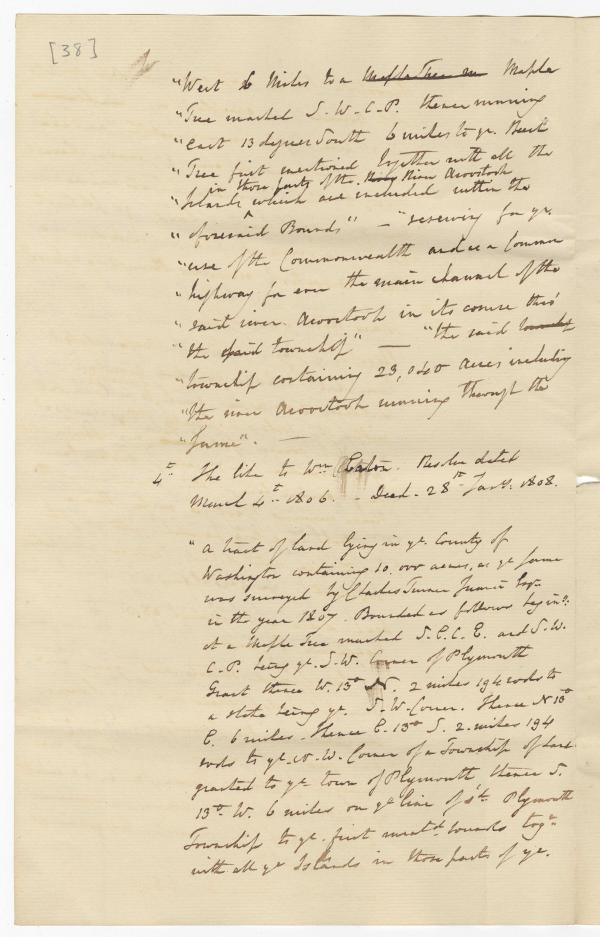 [38]
"West 6 Miles to a Maple Tree m Maple
"Tree marked S. W. C. P. thence running
"East 13 degrees South 6 miles to ye. Beech
"Tree first mentioned together with all the
in those parts of the River Aroostook
"Islands which are included within the
"aforesaid Bounds" — "reserving for ye.
"use of the Commonwealth and as a Common
"highway for ever the main channel of the
"said river Aroostook in its course thro'
"the said township" — "the said
"township containing 23,040 acres including
"the river Aroostook running through the
"Same". —
4th. The like to Wm Eaton. Resolve dated
March 4th. 1806. - Deed - 28th Jany. 1808.
"A tract of land lying in ye. County of
Washington containing 10,000 acres, as ye Same
was surveyed by Charles Turner Junior Esqr.
in the year 1807. Bounded as follows begins.
at a Maple Tree marked S. E. C. E. and S. W.
C. P. being ye. S. W. Corner of Plymouth
Grant thence W. 13° N. 2 miles 194 rods to
a stake being ye. S. W. Corner. Thence N 13°
E. 6 miles. Thence E. 13° S. 2 miles 194
rods to ye. N. W. Corner of a Township of Land
granted to ye town of Plymouth thence S.
13° W. 6 miles on ye line of sd. Plymouth
Township to ye. first ment.d bounds togr.
with all ye Islands in those parts of ye.